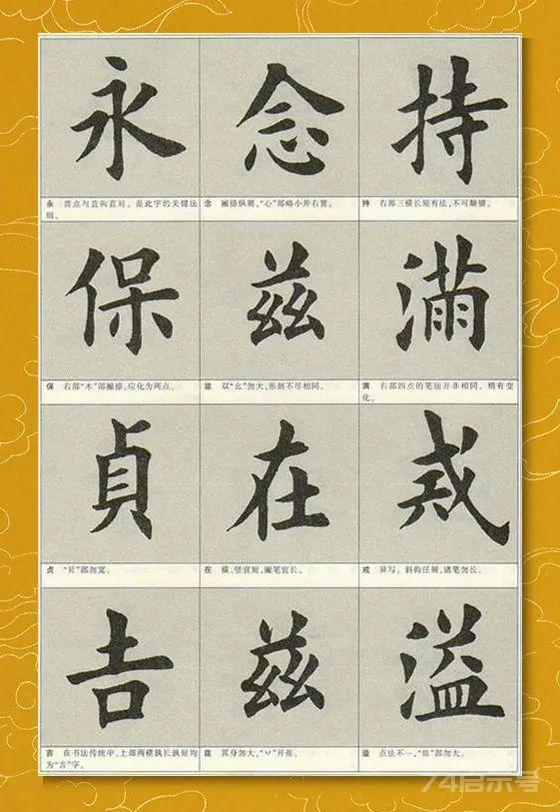 持
持 右部三横长短有法,不可颠错。
滿
满 右部四点的笔法并非相同,稍有变
化。
戒
戒 异写。斜钩任展,诸笔勿长。
溢
溢 点法不一,“皿”部勿大。
念
念 撇捺纵展,“心”部略小并右置。
兹
兹 双“幺”勿大,形制不尽相同。
在
在 横、竖宜短,撇笔宜长。
兹
兹 其身勿大,“丷”开张。
永
永 首点与直钩直对,是此字的关键法
则。
保
保 右部“木”部撇捺,应化为两点。
貞
贞 “贝”部勿宽。
吉
吉 在书法传统中,上部两横孰长孰短均
为“吉”字。
74启示号